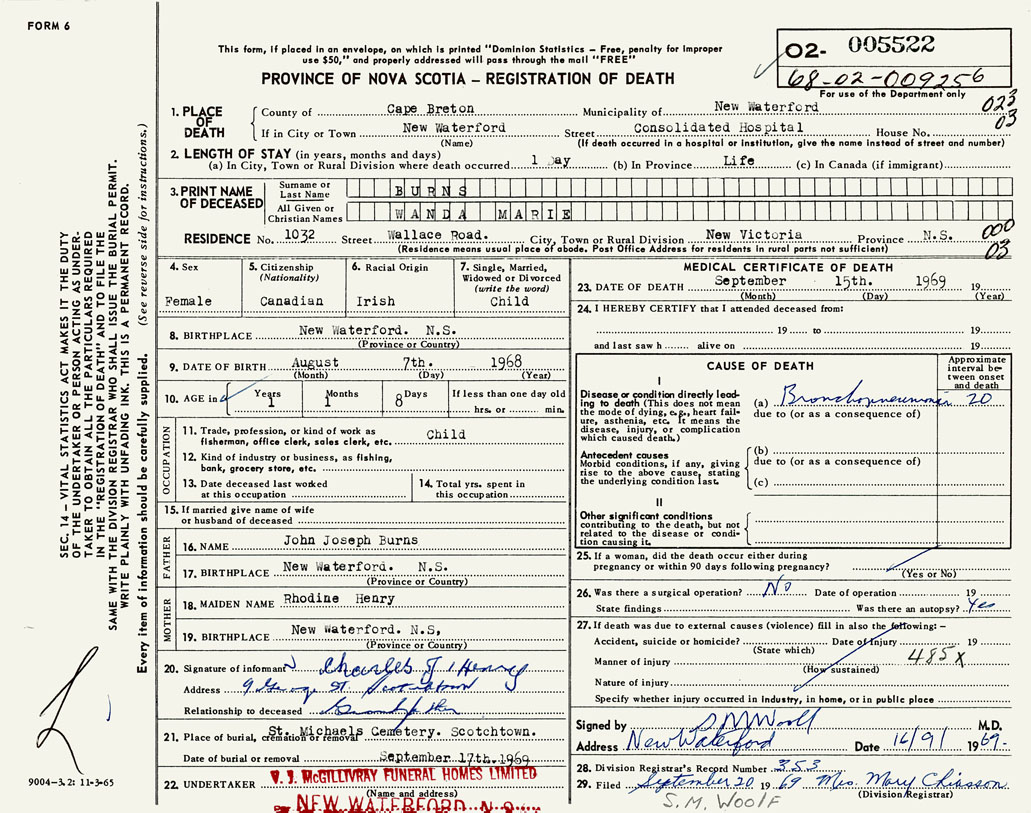 FORM 6
This form, if placed in an envelope, on which is printed "Dominion Statistics – Free, penalty for improper
use $50," and properly addressed will pass through the mail "FREE"
PROVINCE OF NOVA SCOTIA – REGISTRATION OF DEATH
02- 005522
68-02-009256
For use of the Department only
1. PLACE OF DEATH
County of Cape Breton Municipality of New Waterford 023
If in City or Town New Waterford Street Consolidated Hospital House No. 03
(Name) (If death occurred in a hospital or institution, give the name instead of street and number)
2. LENGTH OF STAY (in years, months and days)
(a) In City, Town or Rural Division where death occurred 1 Day (b) In Province Life (c) In Canada (if immigrant)
3. PRINT NAME OF DECEASED
Surname or Last Name BURNS
All Given or Christian Names WANDA MARIE
RESIDENCE No. 1032 Street Wallace Road. City, Town or Rural Division New Victoria Province N.S. 000
(Residence means usual place of abode. Post Office Address for residents in rural parts not sufficient) 03
4. Sex
Female
5. Citizenship
(Nationality)
Canadian
6. Racial Origin
Irish
7. Single, Married,
Widowed or Divorced
(write the word)
Child
8. BIRTHPLACE New Waterford. N.S.
(Province or Country)
9. DATE OF BIRTH August 7th. 1968
(Month) (Day) (Year)
10. AGE in Years 1 Months 1 Days 8 If less than one day old
hrs. or min.
OCCUPATION
11. Trade, profession, or kind of work as
fisherman, office clerk, sales clerk, etc. Child
12. Kind of industry or business, as fishing,
bank, grocery store, etc.
13. Date deceased last worked
at this occupation
14. Total yrs. spent in
this occupation
15. If married give name of wife
or husband of deceased
FATHER
16. NAME John Joseph Burns
17. BIRTHPLACE New Waterford. N.S.
(Province or Country)
MOTHER
18. MAIDEN NAME Rhodine Henry
19. BIRTHPLACE New Waterford. N.S,
(Province or Country)
20. Signature of informant Charles J Henry
Address 9 George St. Scotchtown
Relationship to deceased Grandfather
21. Place of burial, cremation or removal St. Michaels Cemetery. Scotchtown.
Date of burial or removal September 17th.1969
22. UNDERTAKER V. J. McGILLIVRAY FUNERAL HOMES LIMITED
(Name and address)
NEW WATERFORD, N.S.
MEDICAL CERTIFICATE OF DEATH
23. DATE OF DEATH September 15th. 1969 19
(Month) (Day) (Year)
24. I HEREBY CERTIFY that I attended deceased from:
19 to 19
and last saw h alive on 19
CAUSE OF DEATH
Approximate
interval be-
tween onset
and death
I
Disease or condition directly lead-
ing to death (This does not mean
the mode of dying, e.g., heart fail-
ure, asthenia, etc. It means the
disease, injury, or complication
which caused death.)
(a) Bronchopneumonia 20
due to (or as a consequence of)
Antecedent causes
Morbid conditions, if any, giving
rise to the above cause, stating
the underlying condition last.
(b)
due to (or as a consequence of)
(c)
II
Other significant conditions
contributing to the death, but not
related to the disease or condi-
tion causing it.
25. If a woman, did the death occur either during
pregnancy or within 90 days following pregnancy?
(Yes or No)
26. Was there a surgical operation? No Date of operation 19
State findings Was there an autopsy? Yes
27. If death was due to external causes (violence) fill in also the following: –
Accident, suicide or homicide? Date of Injury 19
(State which)
Manner of injury 485X
(How sustained)
Nature of injury
Specify whether injury occurred in Industry, in home, or in public place
Signed by S M Woolf M.D.
Address New Waterford Date 16/9/ 1969.
28. Division Registrar's Record Number 353
29. Filed September 20 1969 Mrs. Mary Chiasson
(Division Registrar)
S.M. WOOLF
SEC. 14 – VITAL STATISTICS ACT MAKES IT THE DUTY
OF THE UNDERTAKER OR PERSON ACTING AS UNDER-
TAKER TO OBTAIN ALL THE PARTICULARS REQUIRED
IN THE "REGISTRATION OF DEATH" AND TO FILE THE
SAME WITH THE DIVISION REGISTRAR WHO SHALL ISSUE THE BURIAL PERMIT.
WRITE PLAINLY WITH UNFADING INK. THIS IS A PERMANENT RECORD.
Every item of information should be carefully supplied. (See reverse side for instructions.)
9004-3.2: 11-3-65